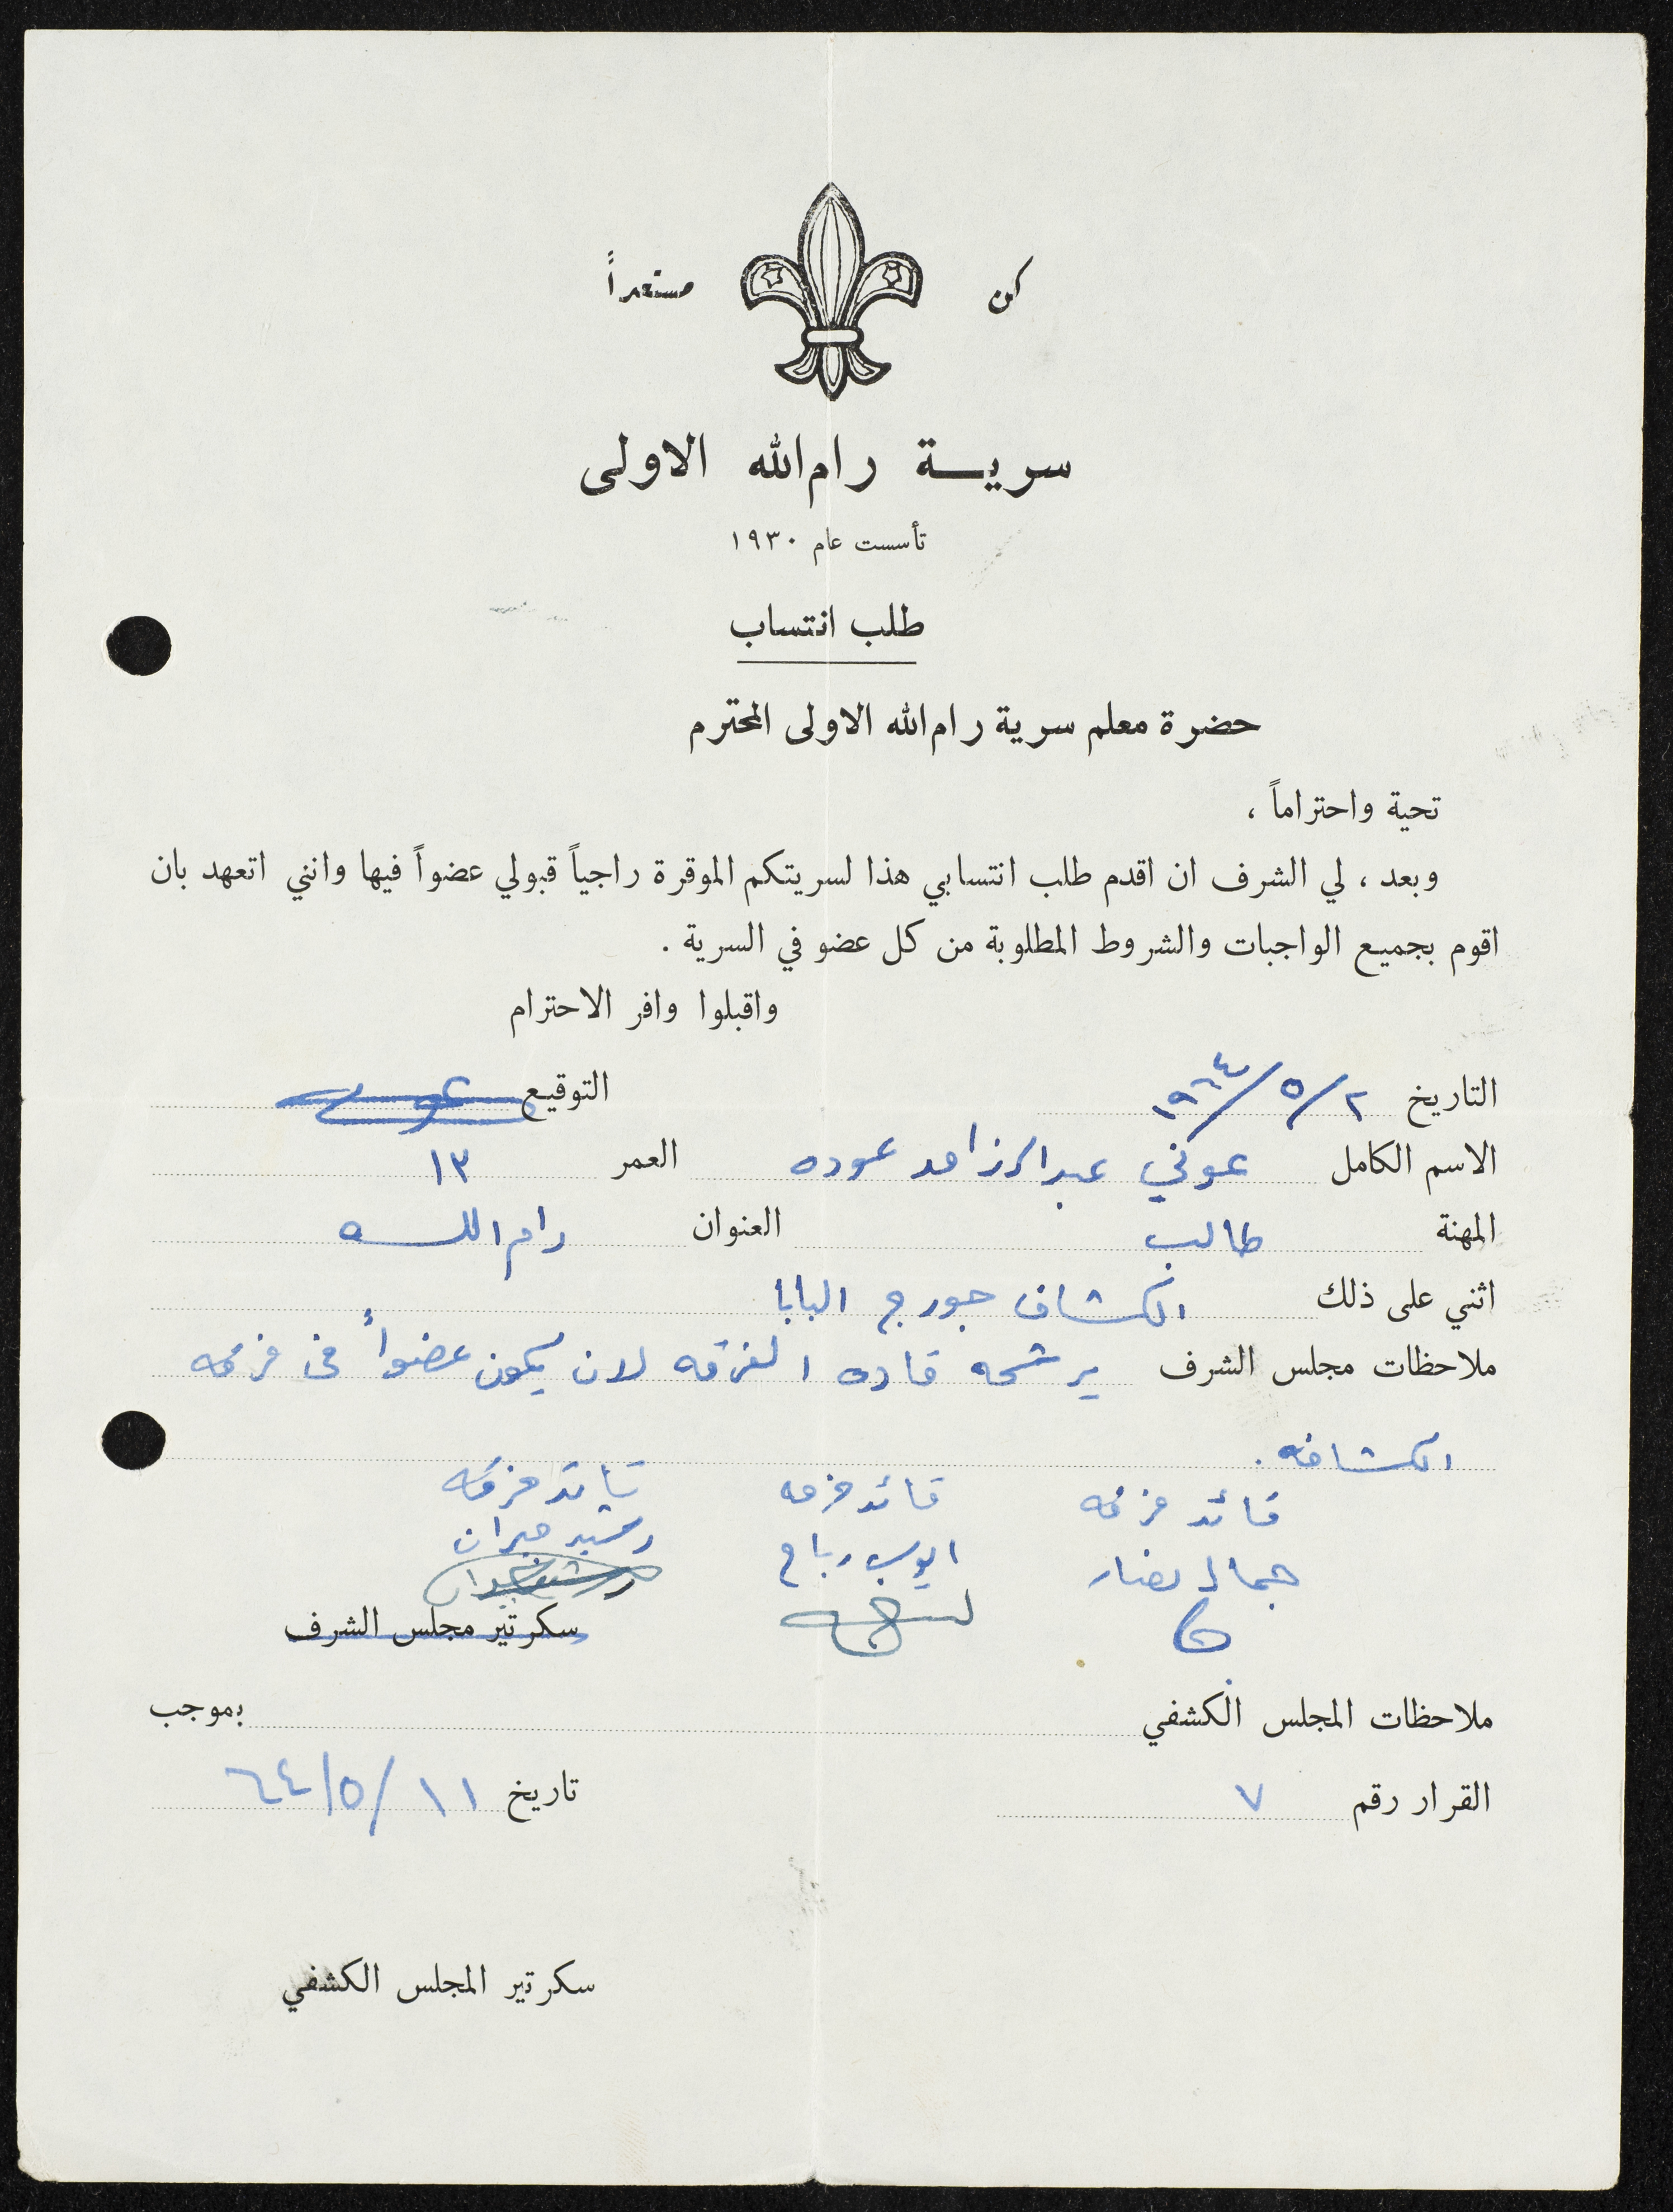 كن مستعداً
سرية رام الله الاولى
تأسست عام ١٩٣٠
طلب انتساب
حضرة معلم سرية رام الله الاولى المحترم
تحية واحتراماً ،
وبعد ، لي الشرف ان اقدم طلب انتسابي هذا لسريتكم الموقرة راجياً قبولي عضواً فيها وانني اتعهد بان
اقوم بجميع الواجبات والشروط المطلوبة من كل عضو في السرية .
واقبلوا وافر الاحترام
التاريخ ٢/٥/١٩٦٤ التوقيع
الاسم الكامل عوني عبد الرزاق عوده العمر ١٣
المهنة طالب العنوان رام الله
اثني على ذلك الكشاف جورج البابا
ملاحظات مجلس الشرف يرشحه قاده الفرقه لان يكون عضواً في فرقه
الكشافه .
قائد فرقه قائد فرقه قائد فرقه
جمال نصار ايوب رباح رشيد جبران
سكرتير مجلس الشرف
ملاحظات المجلس الكشفي بموجب
القرار رقم ٧ تاريخ ١١/٥/٦٤
سكرتير المجلس الكشفي